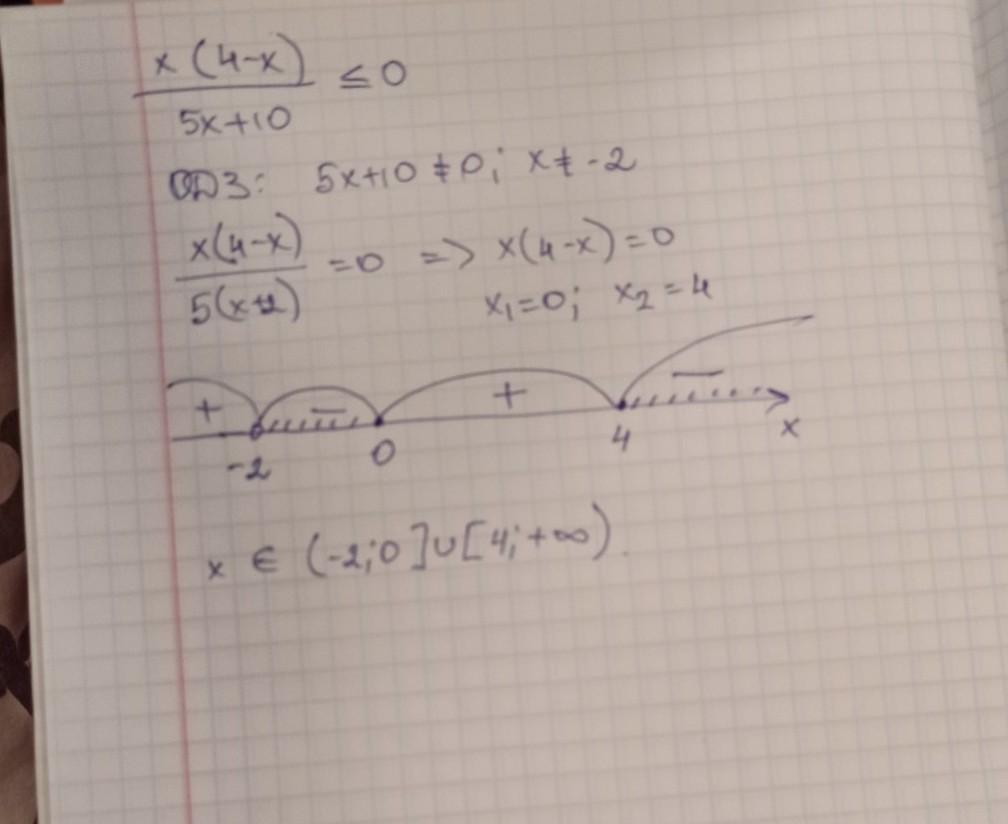 x(4-x)/5x+10 ≤ 0
ОДЗ: 5x+10≠0; x≠-2
x(4-x)/5(x+2) =0 => x(4-x)=0
x₁=0; x₂=4
+ − + −
-2 0 4 x
x ∈ (-2;0]∪[4;+∞).